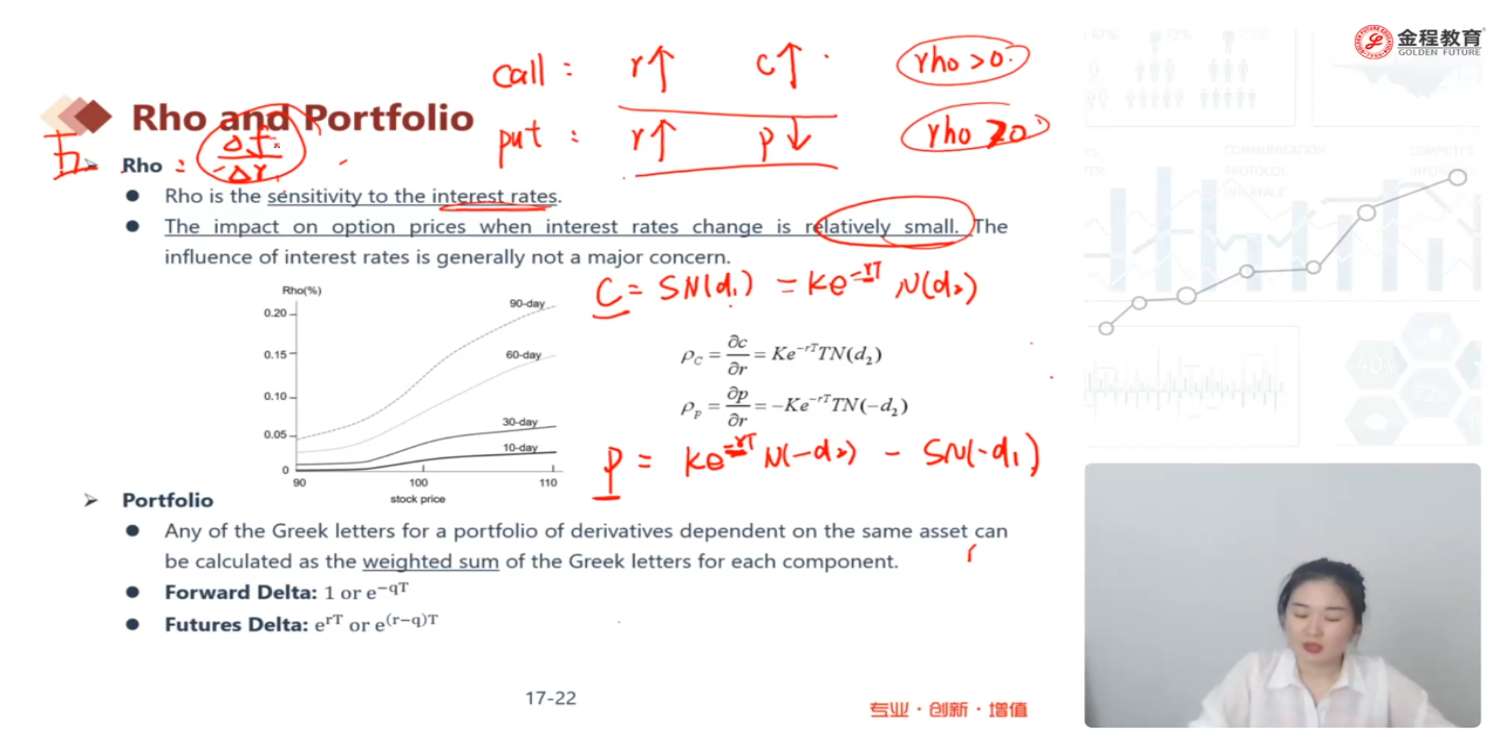 金程教育
GOLDEN FUTURE
call : r↑ c↑ rho >0
Rho and Portfolio
put : r↑ p↓
五
Rho = Δf/Δr
Rho is the sensitivity to the interest rates.
The impact on option prices when interest rates change is relatively small. The
influence of interest rates is generally not a major concern.
C = SN(d₁) = Ke^-rT N(d₂)
Rho(%)
0.20
0.15
0.10
0.05
0
90-day
60-day
30-day
10-day
90
100
110
stock price
ρ_C = ∂c/∂r = Ke^−rT TN(d₂)
ρ_p = ∂p/∂r = −Ke^−rT TN(−d₂)
P = Ke^-rT N(-d₂) - SN(-d₁)
Portfolio
Any of the Greek letters for a portfolio of derivatives dependent on the same asset can
be calculated as the weighted sum of the Greek letters for each component.
Forward Delta: 1 or e^−qT
Futures Delta: e^rT or e^(r−q)T
17-22
专业·创新·增值